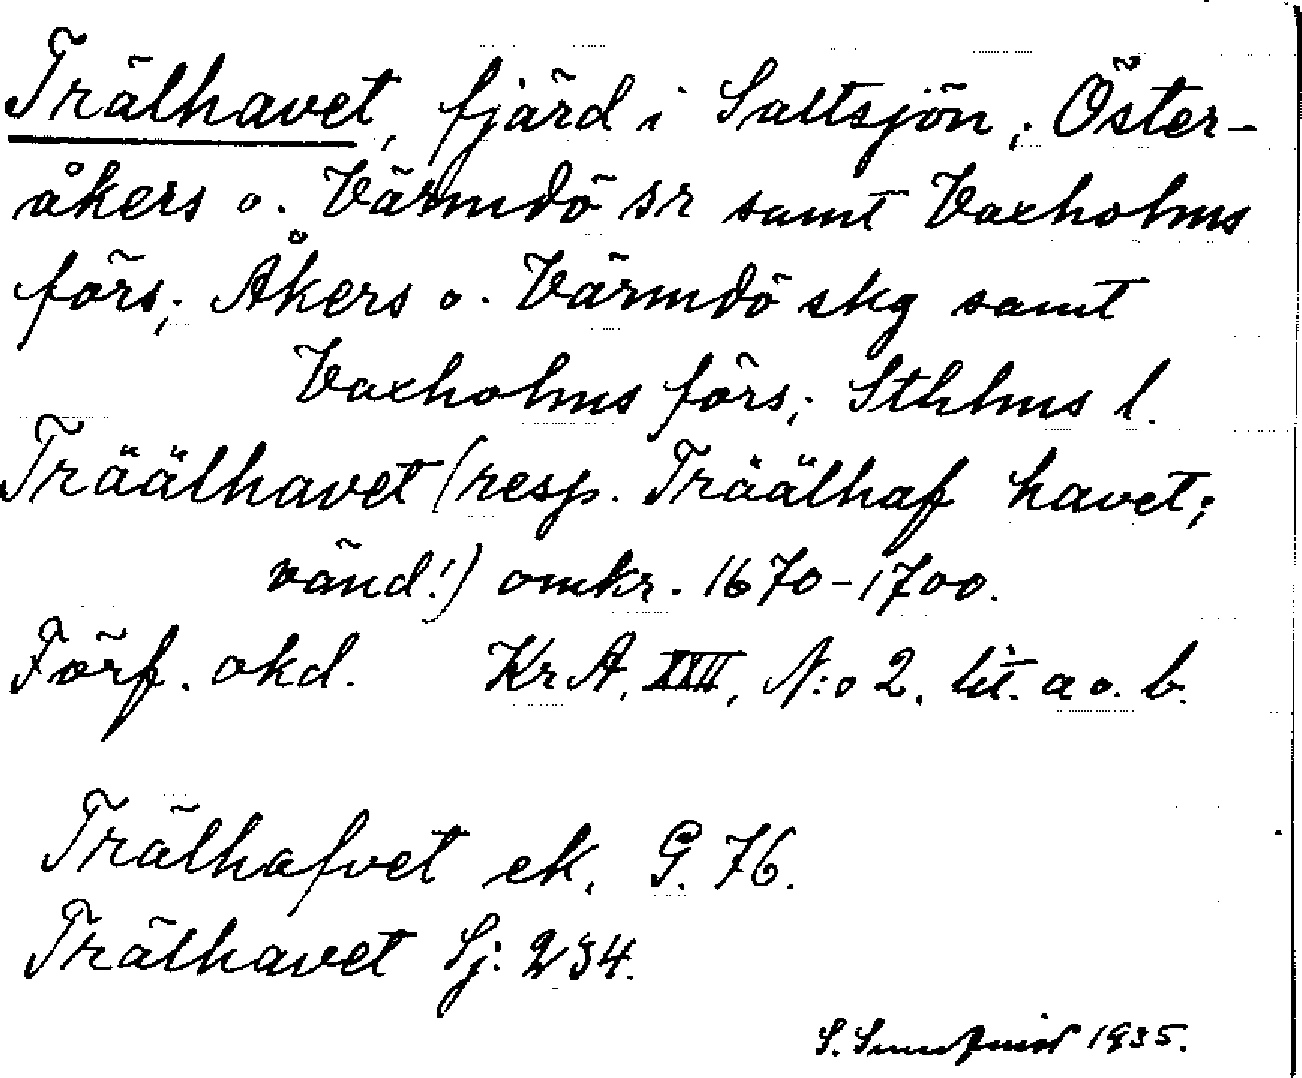 Trälhavet, fjärd i Saltsjön; Öster-
åkers o. Värmdö sr samt Vaxholms
förs; Åkers o. Värmdö skg samt
Vaxholms förs; Sthlms l.
Träälhavet (resp. Träälhaf havet;
vänd!) omkr. 1670-1700.
Förf. okd. KrA. XXII, N:o 2, lit. a o. b.
Trälhafvet ek. G. 76.
Trälhavet Sj: 234.
S. 1935.